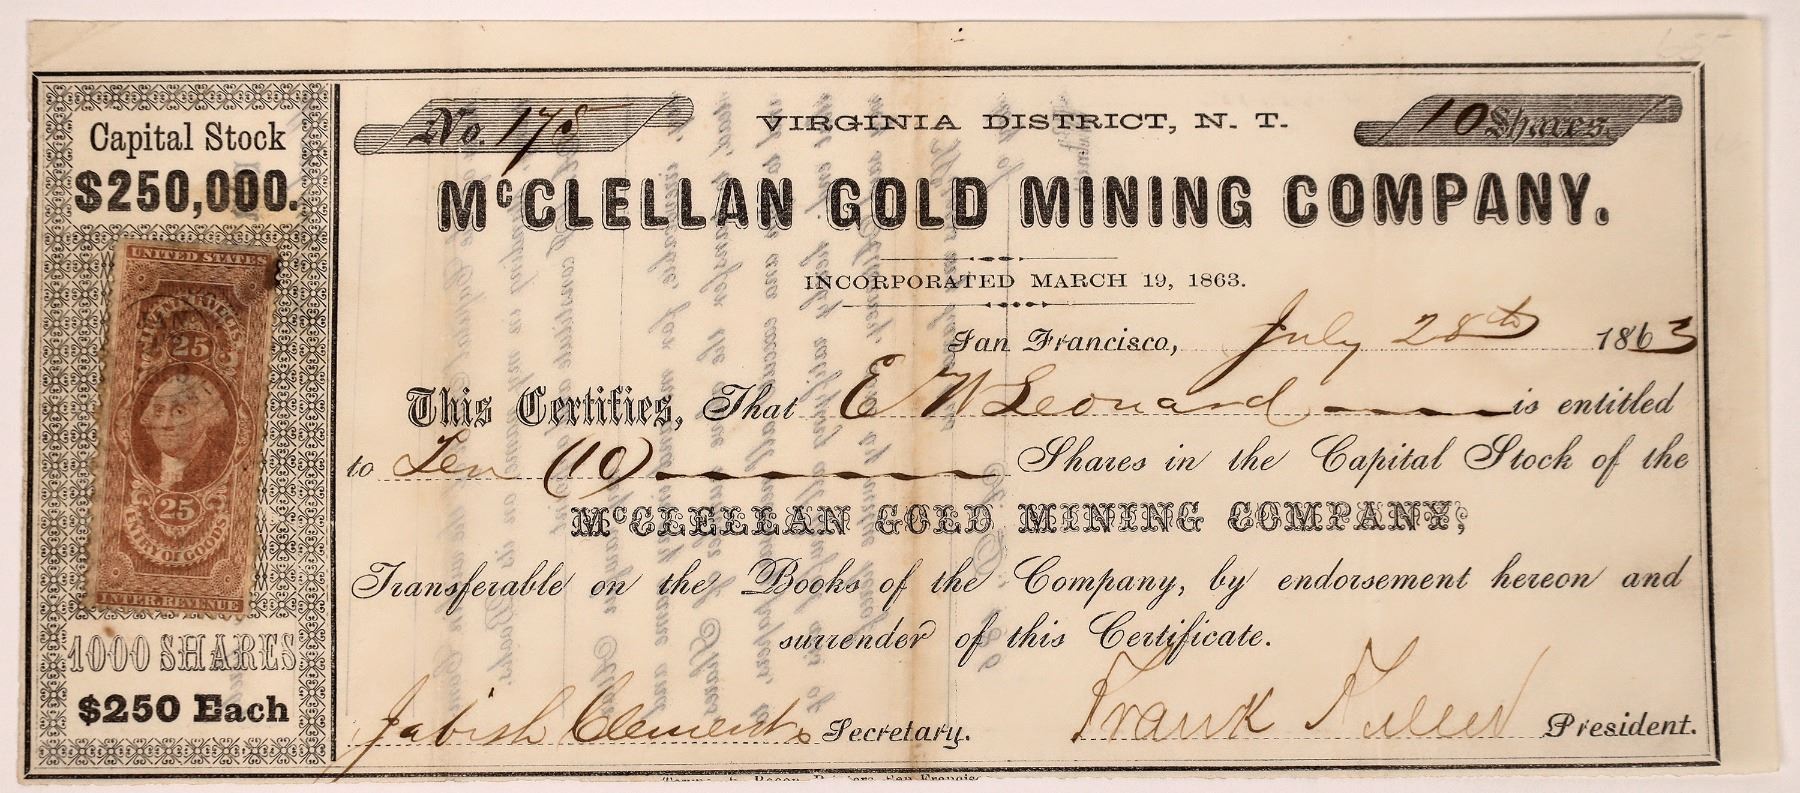 Capital Stock
$250,000.
UNITED STATES
25
25
ENTRY OF GOODS
INTER. REVENUE
1000 SHARES
$250 Each
No. 178
VIRGINIA DISTRICT, N. T.
10 Shares.
McCLELLAN GOLD MINING COMPANY.
INCORPORATED MARCH 19, 1863.
San Francisco, July 28th 1863
This Certifies, That E W Leonard is entitled
to Ten (10) Shares in the Capital Stock of the
McCLELLAN GOLD MINING COMPANY;
Transferable on the Books of the Company, by endorsement hereon and
surrender of this Certificate.
Jabish Clement Secretary. Frank President.